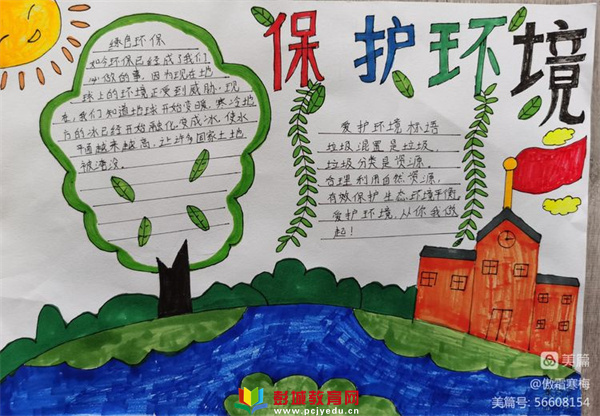 保护环境
绿色环保
如今环保已经成了我们
必做的事，因为现在地
球上的环境正受到威胁，现
在，我们知道地球开始变暖，寒冷地
方的冰已经开始融化，变成水，使水
平面越来越高，让许多国家土地
被淹没。
爱护环境标语
垃圾混置是垃圾，
垃圾分类是资源，
合理利用自然资源，
有效保护生态环境平衡，
爱护环境，从你我做
起！
美篇
@傲霜寒梅
美篇号：56608154
彭城教育网
www.pcjyedu.cn